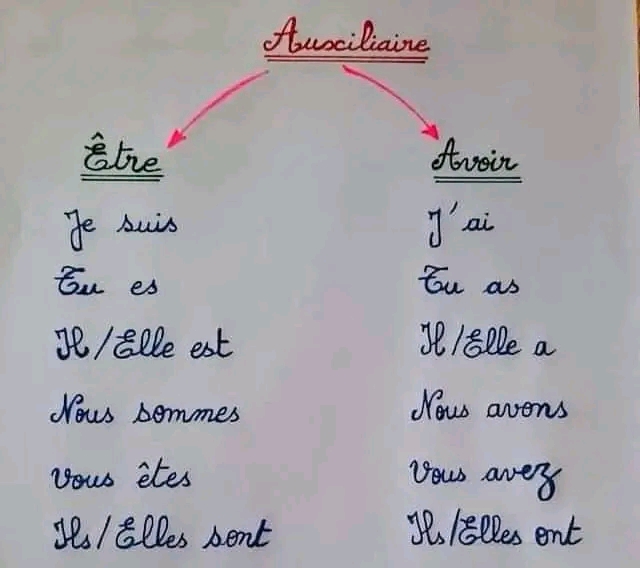 Auxciliaire
Être Avoir
Je suis J'ai
Tu es Tu as
Il/Elle est Il/Elle a
Nous sommes Nous avons
Vous êtes Vous avez
Ils/Elles sont Ils/Elles ont